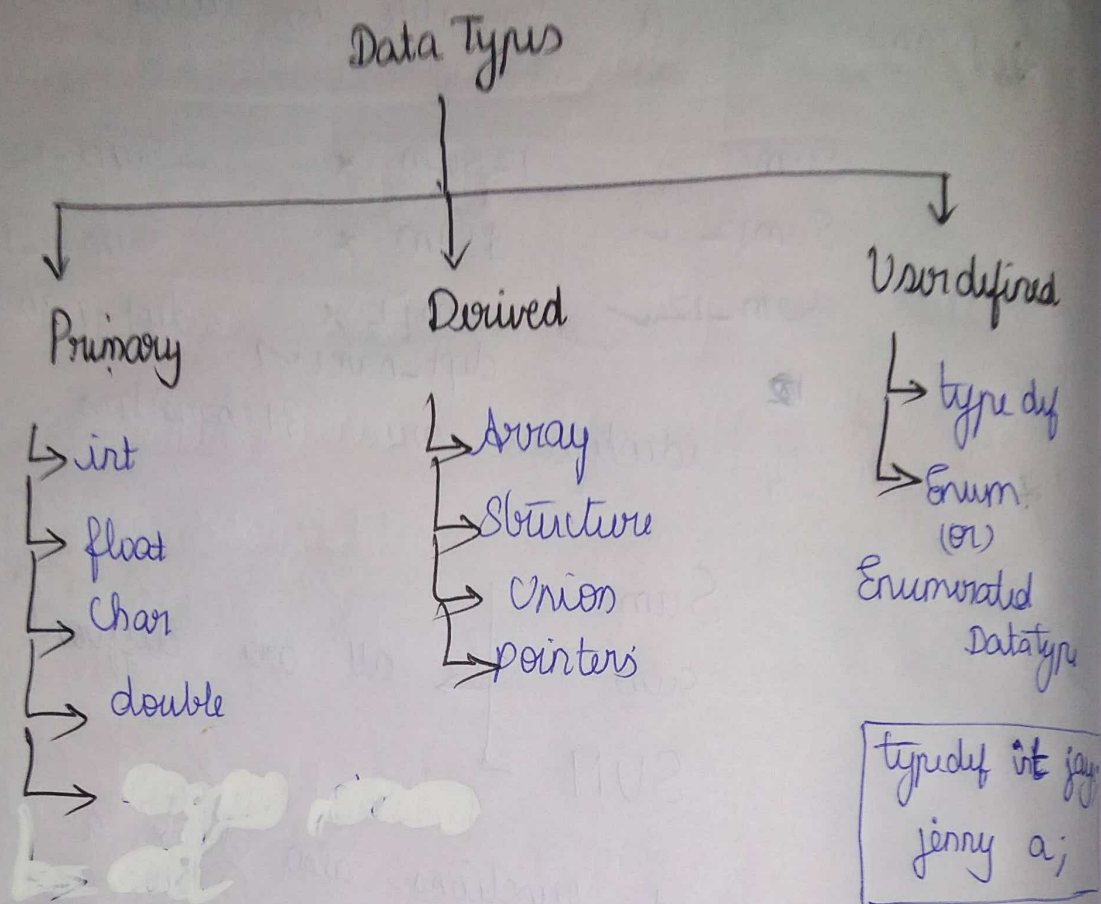 Data Types
Primary
int
float
Char
double
Derived
Array
Structure
Union
pointers
Userdefined
type def
Enum
(or)
Enumerated
Datatype
typedef int jay
jenny a;